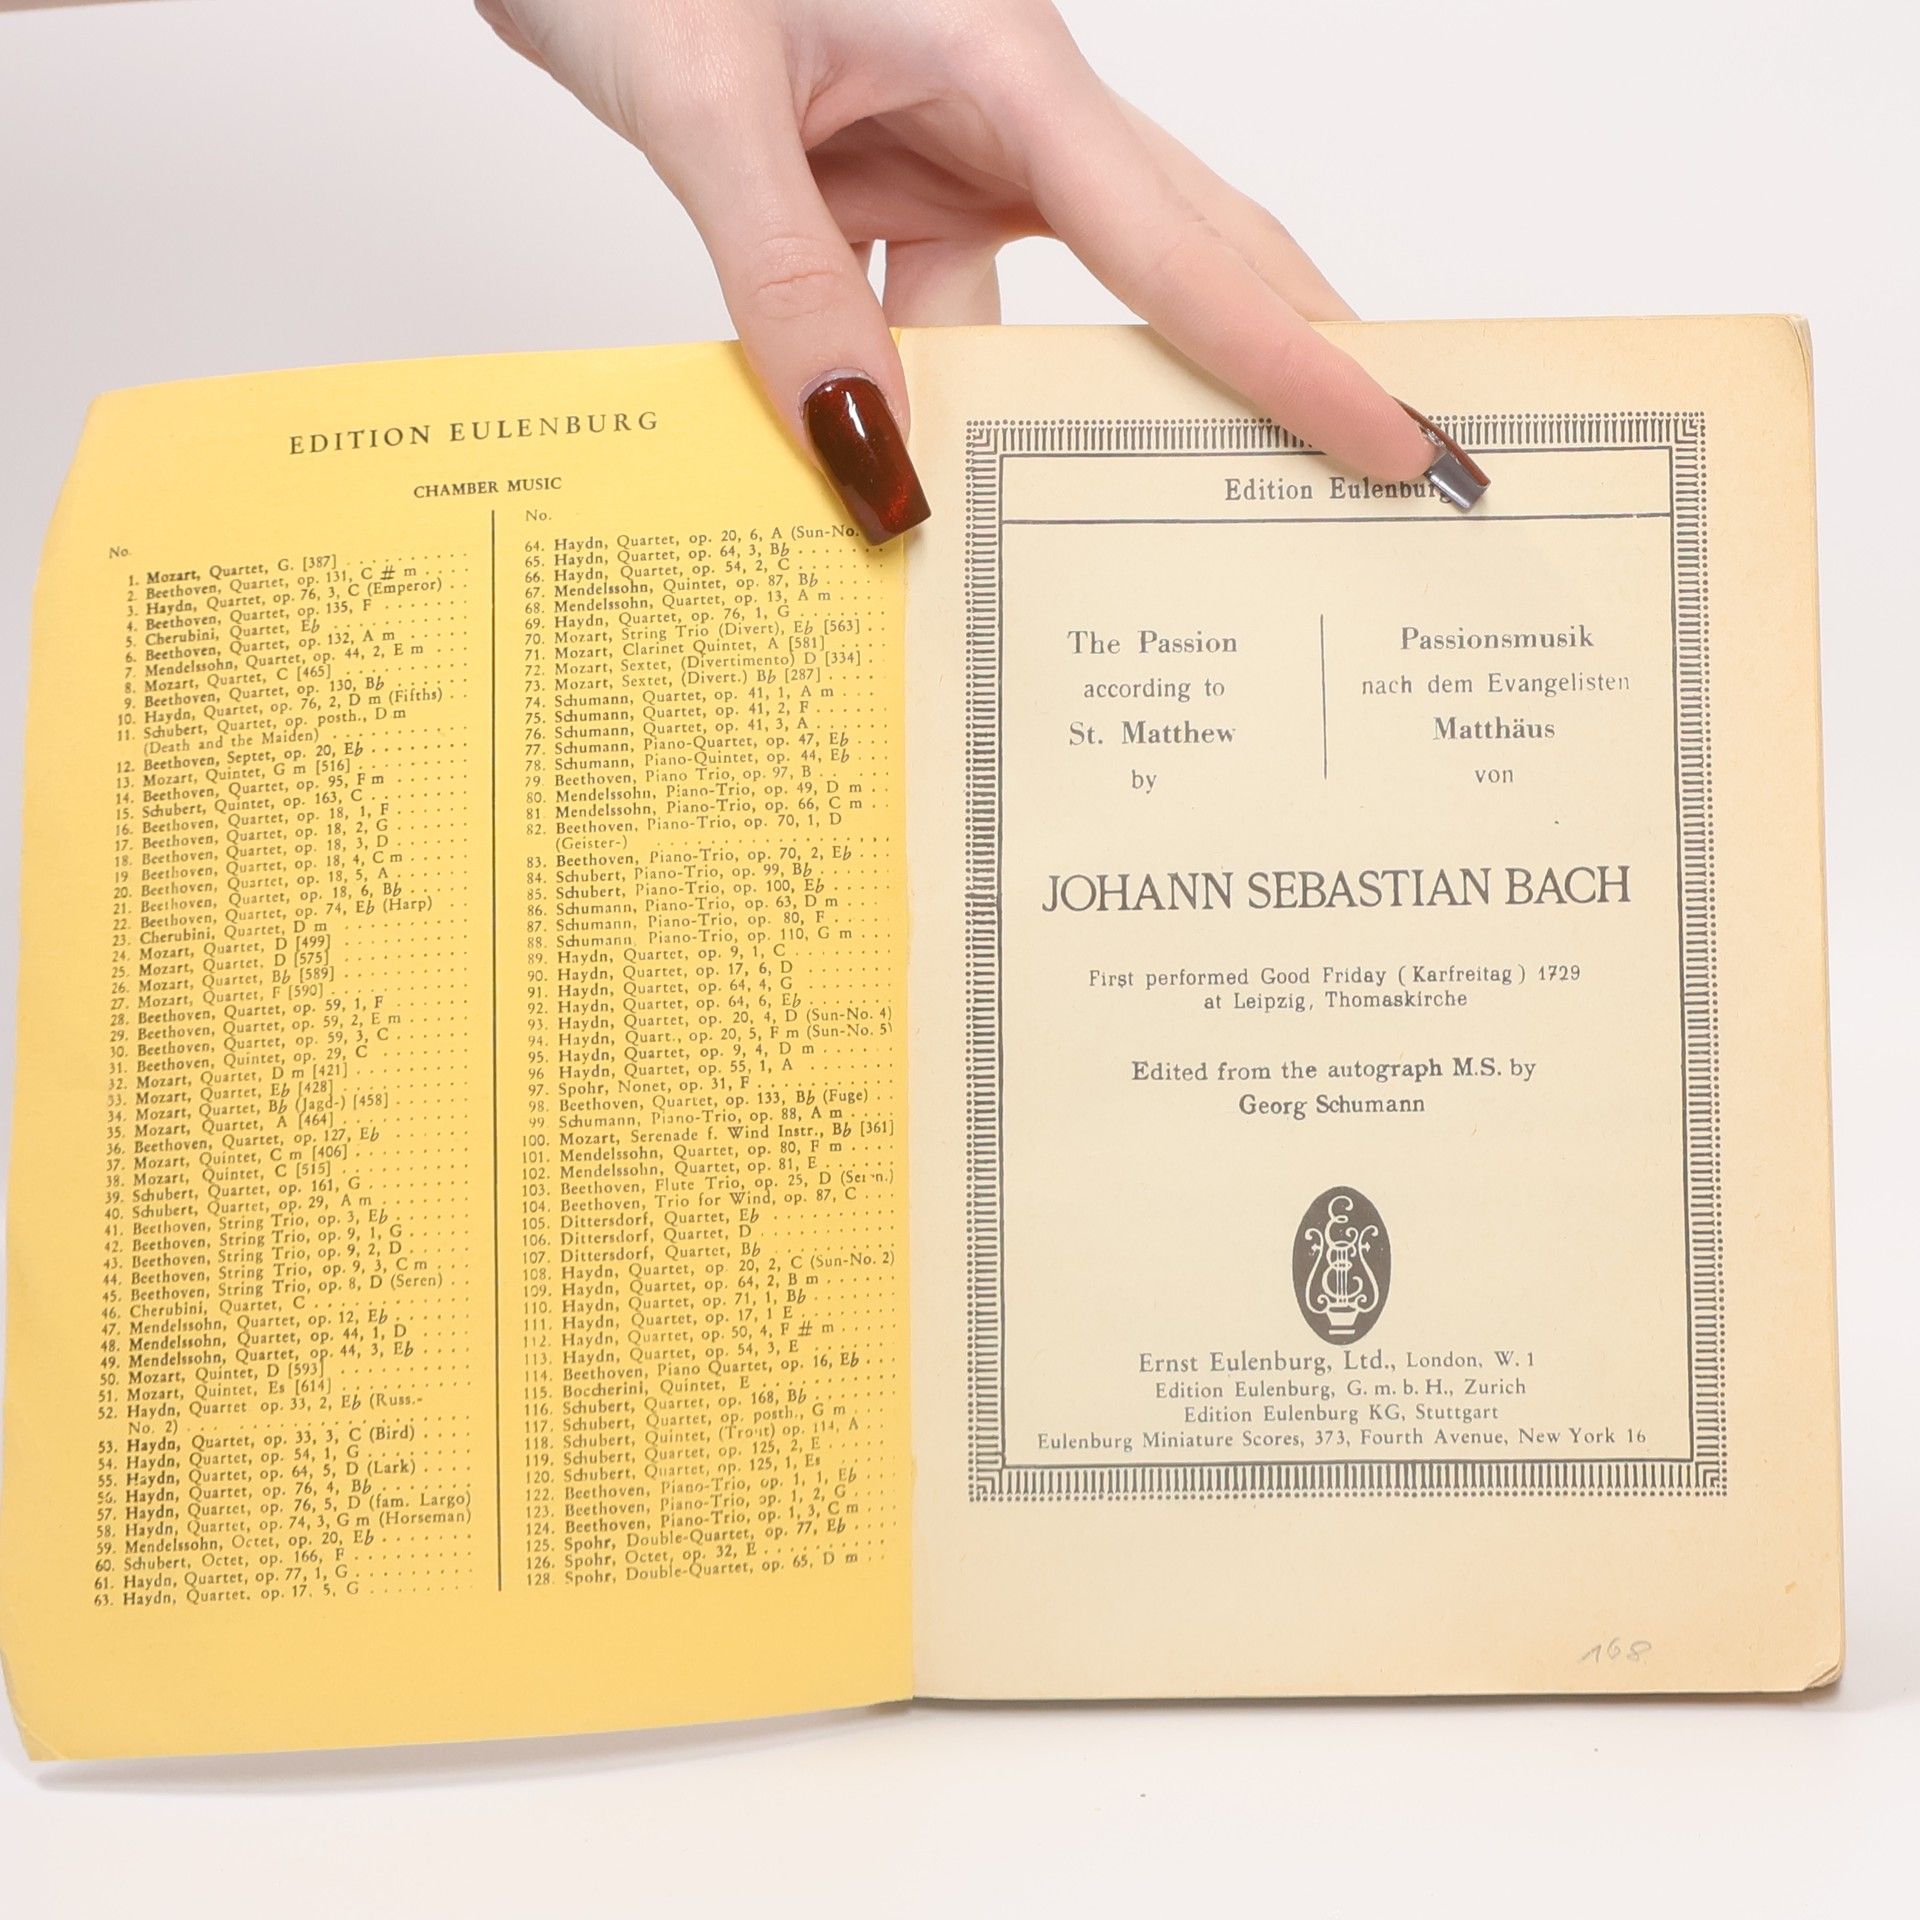 EDITION EULENBURG
CHAMBER MUSIC
No.
1. Mozart, Quartet, G. [387]
2. Beethoven, Quartet, op. 131, C # m
3. Haydn, Quartet, op. 76, 3, C (Emperor)
4. Beethoven, Quartet, op. 135, F
5. Cherubini, Quartet, E♭
6. Beethoven, Quartet, op. 132, A m
7. Mendelssohn, Quartet, op. 44, 2, E m
8. Mozart, Quartet, C [465]
9. Beethoven, Quartet, op. 130, B♭
10. Haydn, Quartet, op. 76, 2, D m (Fifths)
11. Schubert, Quartet, op. posth., D m
(Death and the Maiden)
12. Beethoven, Septet, op. 20, E♭
13. Mozart, Quintet, G m [516]
14. Beethoven, Quartet, op. 95, F m
15. Schubert, Quintet, op. 163, C
16. Beethoven, Quartet, op. 18, 1, F
17. Beethoven, Quartet, op. 18, 2, G
18. Beethoven, Quartet, op. 18, 3, D
19 Beethoven, Quartet, op. 18, 4, C m
20. Beethoven, Quartet, op. 18, 5, A
21. Beethoven, Quartet, op. 18, 6, B♭
22. Beethoven, Quartet, op. 74, E♭ (Harp)
23. Cherubini, Quartet, D m
24. Mozart, Quartet, D [499]
25. Mozart, Quartet, D [575]
26. Mozart, Quartet, B♭ [589]
27. Mozart, Quartet, F [590]
28. Beethoven, Quartet, op. 59, 1, F
29. Beethoven, Quartet, op. 59, 2, E m
30. Beethoven, Quartet, op. 59, 3, C
31. Beethoven, Quintet, op. 29, C
32. Mozart, Quartet, D m [421]
33. Mozart, Quartet, E♭ [428]
34. Mozart, Quartet, B♭ (Jagd-) [458]
35. Mozart, Quartet, A [464]
36. Beethoven, Quartet, op. 127, E♭
37. Mozart, Quintet, C m [406]
38. Mozart, Quintet, C [515]
39. Schubert, Quartet, op. 161, G
40. Schubert, Quartet, op. 29, A m
41. Beethoven, String Trio, op. 3, E♭
42. Beethoven, String Trio, op. 9, 1, G
43. Beethoven, String Trio, op. 9, 2, D
44. Beethoven, String Trio, op. 9, 3, C m
45. Beethoven, String Trio, op. 8, D (Seren)
46. Cherubini, Quartet, C
47. Mendelssohn, Quartet, op. 12, E♭
48. Mendelssohn, Quartet, op. 44, 1, D
49. Mendelssohn, Quartet, op. 44, 3, E♭
50. Mozart, Quintet, D [593]
51. Mozart, Quintet, Es [614]
52. Haydn, Quartet op. 33, 2, E♭ (Russ.-
No. 2)
53. Haydn, Quartet, op. 33, 3, C (Bird)
54. Haydn, Quartet, op. 54, 1, G
55. Haydn, Quartet, op. 64, 5, D (Lark)
56. Haydn, Quartet, op. 76, 4, B♭
57. Haydn, Quartet, op. 76, 5, D (fam. Largo)
58. Haydn, Quartet, op. 74, 3, G m (Horseman)
59. Mendelssohn, Octet, op. 20, E♭
60. Schubert, Octet, op. 166, F
61. Haydn, Quartet, op. 77, 1, G
63. Haydn, Quartet, op. 17, 5, G
No.
64. Haydn, Quartet, op. 20, 6, A (Sun-No.
65. Haydn, Quartet, op. 64, 3, B♭
66. Haydn, Quartet, op. 54, 2, C
67. Mendelssohn, Quintet, op. 87, B♭
68. Mendelssohn, Quartet, op. 13, A m
69. Haydn, Quartet, op. 76, 1, G
70. Mozart, String Trio (Divert), E♭ [563]
71. Mozart, Clarinet Quintet, A [581]
72. Mozart, Sextet, (Divertimento) D [334]
73. Mozart, Sextet, (Divert.) B♭ [287]
74. Schumann, Quartet, op. 41, 1, A m
75. Schumann, Quartet, op. 41, 2, F
76. Schumann, Quartet, op. 41, 3, A
77. Schumann, Piano-Quartet, op. 47, E♭
78. Schumann, Piano-Quintet, op. 44, E♭
79. Beethoven, Piano Trio, op. 97, B
80. Mendelssohn, Piano-Trio, op. 49, D m
81. Mendelssohn, Piano-Trio, op. 66, C m
82. Beethoven, Piano-Trio, op. 70, 1, D
(Geister-)
83. Beethoven, Piano-Trio, op. 70, 2, E♭
84. Schubert, Piano-Trio, op. 99, B♭
85. Schubert, Piano-Trio, op. 100, E♭
86. Schumann, Piano-Trio, op. 63, D m
87. Schumann, Piano-Trio, op. 80, F
88. Schumann, Piano-Trio, op. 110, G m
89. Haydn, Quartet, op. 9, 1, C
90. Haydn, Quartet, op. 17, 6, D
91. Haydn, Quartet, op. 64, 4, G
92. Haydn, Quartet, op. 64, 6, E♭
93. Haydn, Quartet, op. 20, 4, D (Sun-No. 4)
94. Haydn, Quart., op. 20, 5, F m (Sun-No. 5)
95. Haydn, Quartet, op. 9, 4, D m
96 Haydn, Quartet, op. 55, 1, A
97. Spohr, Nonet, op. 31, F
98. Beethoven, Quartet, op. 133, B♭ (Fuge)
99. Schumann, Piano-Trio, op. 88, A m
100. Mozart, Serenade f. Wind Instr., B♭ [361]
101. Mendelssohn, Quartet, op. 80, F m
102. Mendelssohn, Quartet, op. 81, E
103. Beethoven, Flute Trio, op. 25, D (Seren.)
104. Beethoven, Trio for Wind, op. 87, C
105. Dittersdorf, Quartet, E♭
106. Dittersdorf, Quartet, D
107. Dittersdorf, Quartet, B♭
108. Haydn, Quartet, op. 20, 2, C (Sun-No. 2)
109. Haydn, Quartet, op. 64, 2, B m
110. Haydn, Quartet, op. 71, 1, B♭
111. Haydn, Quartet, op. 17, 1 E
112. Haydn, Quartet, op. 50, 4, F # m
113. Haydn, Quartet, op. 54, 3, E
114. Beethoven, Piano Quartet, op. 16, E♭
115. Boccherini, Quintet, E
116. Schubert, Quartet, op. 168, B♭
117. Schubert, Quartet, op. posth., G m
118. Schubert, Quintet, (Trout) op. 114, A
119. Schubert, Quartet, op. 125, 2, E
120. Schubert, Quartet, op. 125, 1, Es
122. Beethoven, Piano-Trio, op. 1, 1, E♭
123. Beethoven, Piano-Trio, op. 1, 2, G
124. Beethoven, Piano-Trio, op. 1, 3, C m
125. Spohr, Double-Quartet, op. 77, E♭
126. Spohr, Octet, op. 32, E
128. Spohr, Double-Quartet, op. 65, D m
Edition Eulenburg
The Passion
according to
St. Matthew
by
Passionsmusik
nach dem Evangelisten
Matthäus
von
JOHANN SEBASTIAN BACH
First performed Good Friday (Karfreitag) 1729
at Leipzig, Thomaskirche
Edited from the autograph M.S. by
Georg Schumann
Ernst Eulenburg, Ltd., London, W. 1
Edition Eulenburg, G. m. b. H., Zurich
Edition Eulenburg KG, Stuttgart
Eulenburg Miniature Scores, 373, Fourth Avenue, New York 16
168